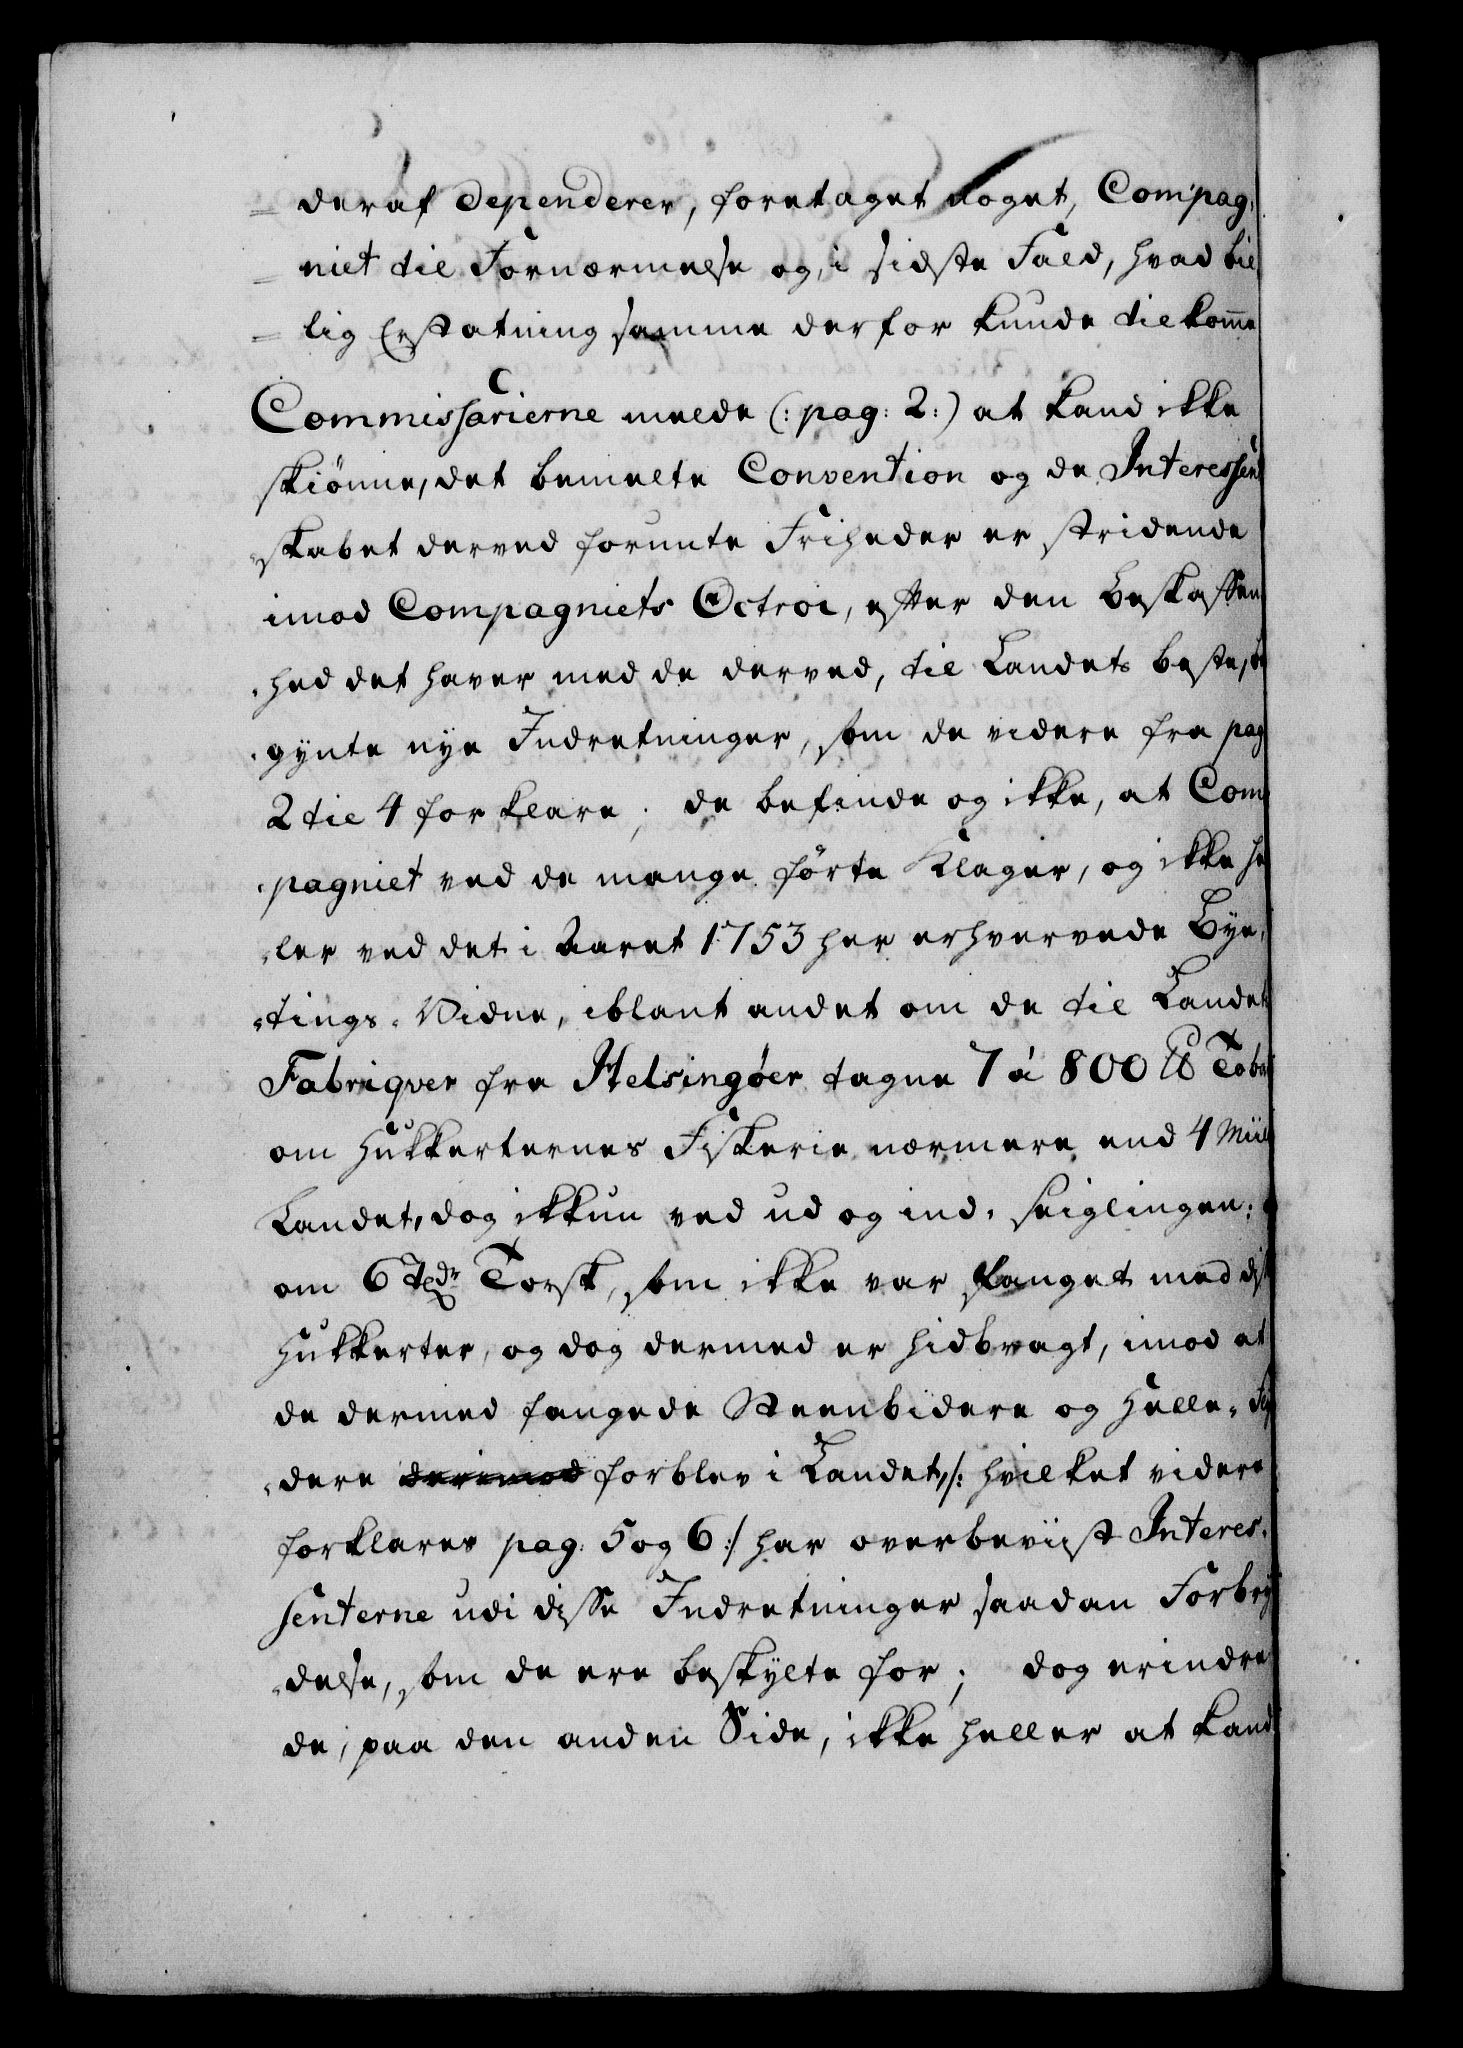 = deraf dependerer, foretaget noget, Compag,
= niet til Fornærmelse og, i sidste Fald, hvad bil
= lig Erstatning samme derfor kunde tilkom̅e
Commissarierne melde (: pag: 2:) at kand ikke
skiönne, det bemelte Convention og de Interessent
skabet derved forunte Friheder er stridende
imod Compagniets Octroi, efter den Beskaffen
hed det haver med de derved, til Landets beste, be
gÿnte nÿe Indretninger, som de videre fra pag
2 til 4 forklare; de befinde og ikke, at Com
pagniet ved de mange förte Klager, og ikke he
ler ved det i Aaret 1753 her erhvervede Bÿe,
tings-Vidne, iblant andet om de til Landets
Fabriqver fra Helsingøer tagne 7 á 800 ℔ Tobak
om Hukkerternes Fiskerie nærmere end 4 Miil
Landet, dog ikkun ved ud og ind-seiglingen;
om 6 Tdr Torsk, som ikke var fanget med disse
Hukkerter, og dog dermed er hidbragt, imod at
de dermed fangede Steenbidere og Helle-flÿ
dere derimod forblev i Landet, /: hvilket videre
forklares pag. 5 og 6 :/ har overbeviist Interes-
senterne udi disse Indretninger saadan Forbrÿ
delse, som de ere beskÿlte for; dog erindre
de, paa den anden Side, ikke heller at kand